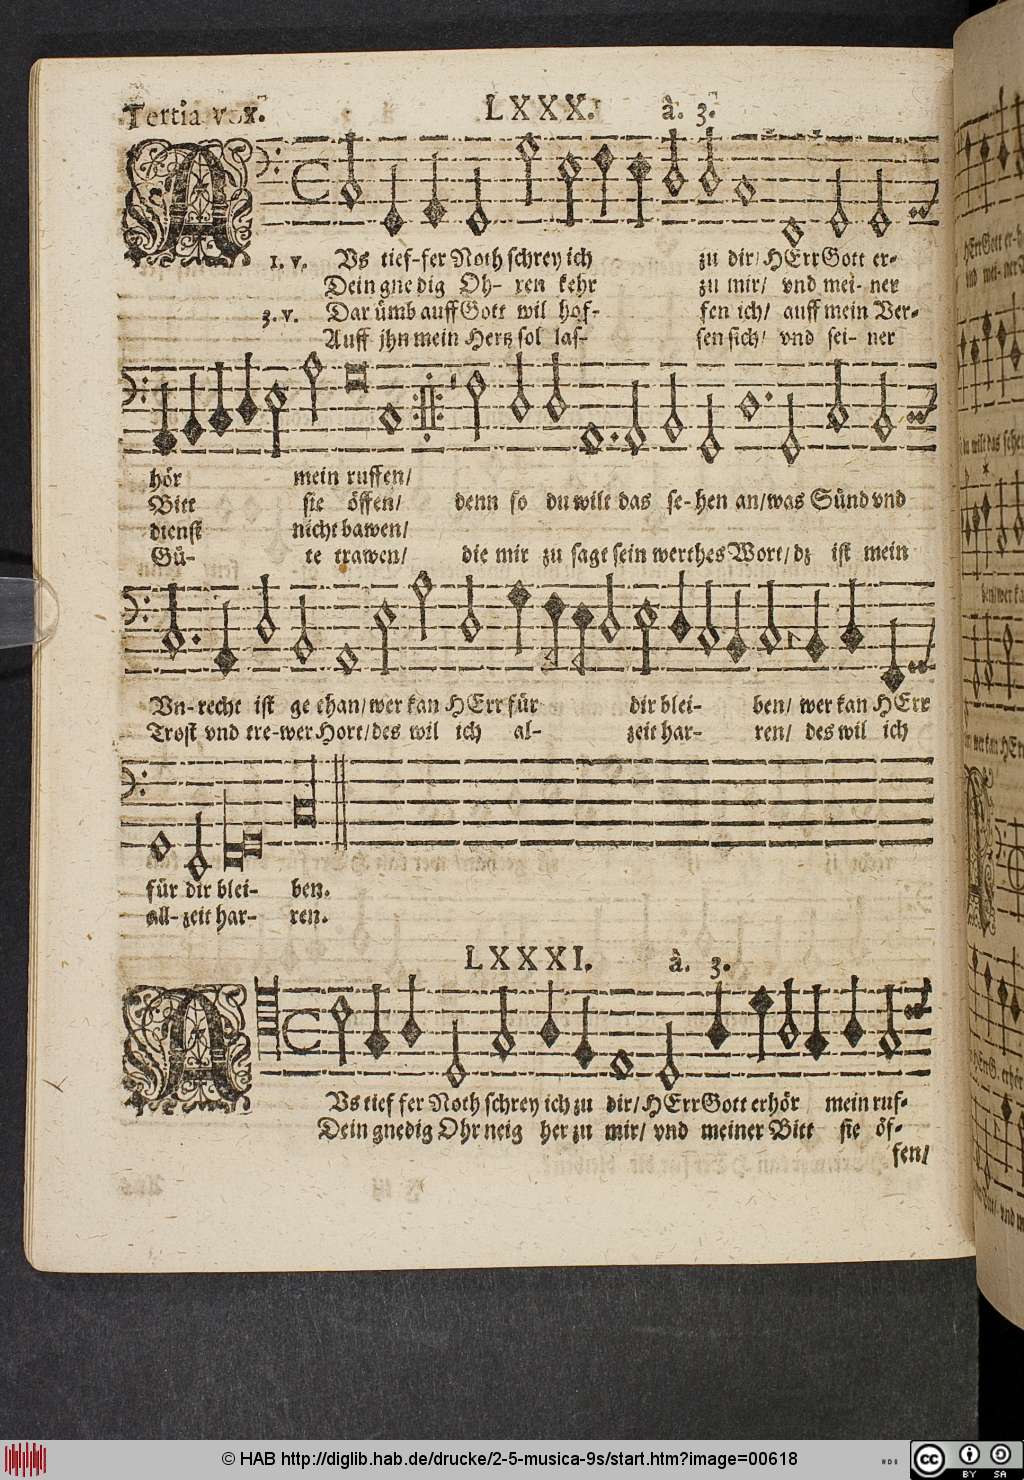 Tertia vox. LXXX. à. 3.
A
1. v. Vs tief-fer Noth schrey ich zu dir/ HErr Gott er-
Dein gne dig Oh- ren kehr zu mir/ vnd mei- ner
3. v. Dar ümb auff Gott wil hof- fen ich/ auff mein Ver-
Auff jhn mein Hertz sol las- sen sich/ vnd sei- ner
hör mein ruffen/
Bitt sie öffen/ denn so du wilt das se- hen an/ was Sünd vnd
dienst nicht bawen/
Gü- te trawen/ die mir zu sagt sein werthes Wort/ dz ist mein
Vn- recht ist ge than/ wer kan HErr für dir blei- ben/ wer kan HErr
Trost vnd tre-wer Hort/ des wil ich al- zeit har- ren/ des wil ich
für dir blei- ben.
all- zeit har- ren.
LXXXI. à. 3.
A
Vs tief fer Noth schrey ich zu dir/ HErr Gott erhör mein ruf-
Dein gnedig Ohr neig her zu mir/ vnd meiner Bitt sie öf-
fen/
© HAB http://diglib.hab.de/drucke/2-5-musica-9s/start.htm?image=00618
cc BY SA